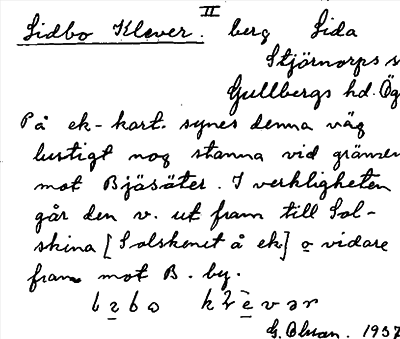 II
Lidbo Klever. berg Lida
Stjörnorps s
Gullbergs hd. Ög
På ek-kart. synes denna väg
lustigt nog stanna vid gränsen
mot Bjäsäter. I verkligheten
går den v. ut fram till Sol-
skina [Solskenet å ek] o vidare
fram mot B. by.
G. Olsson. 1937